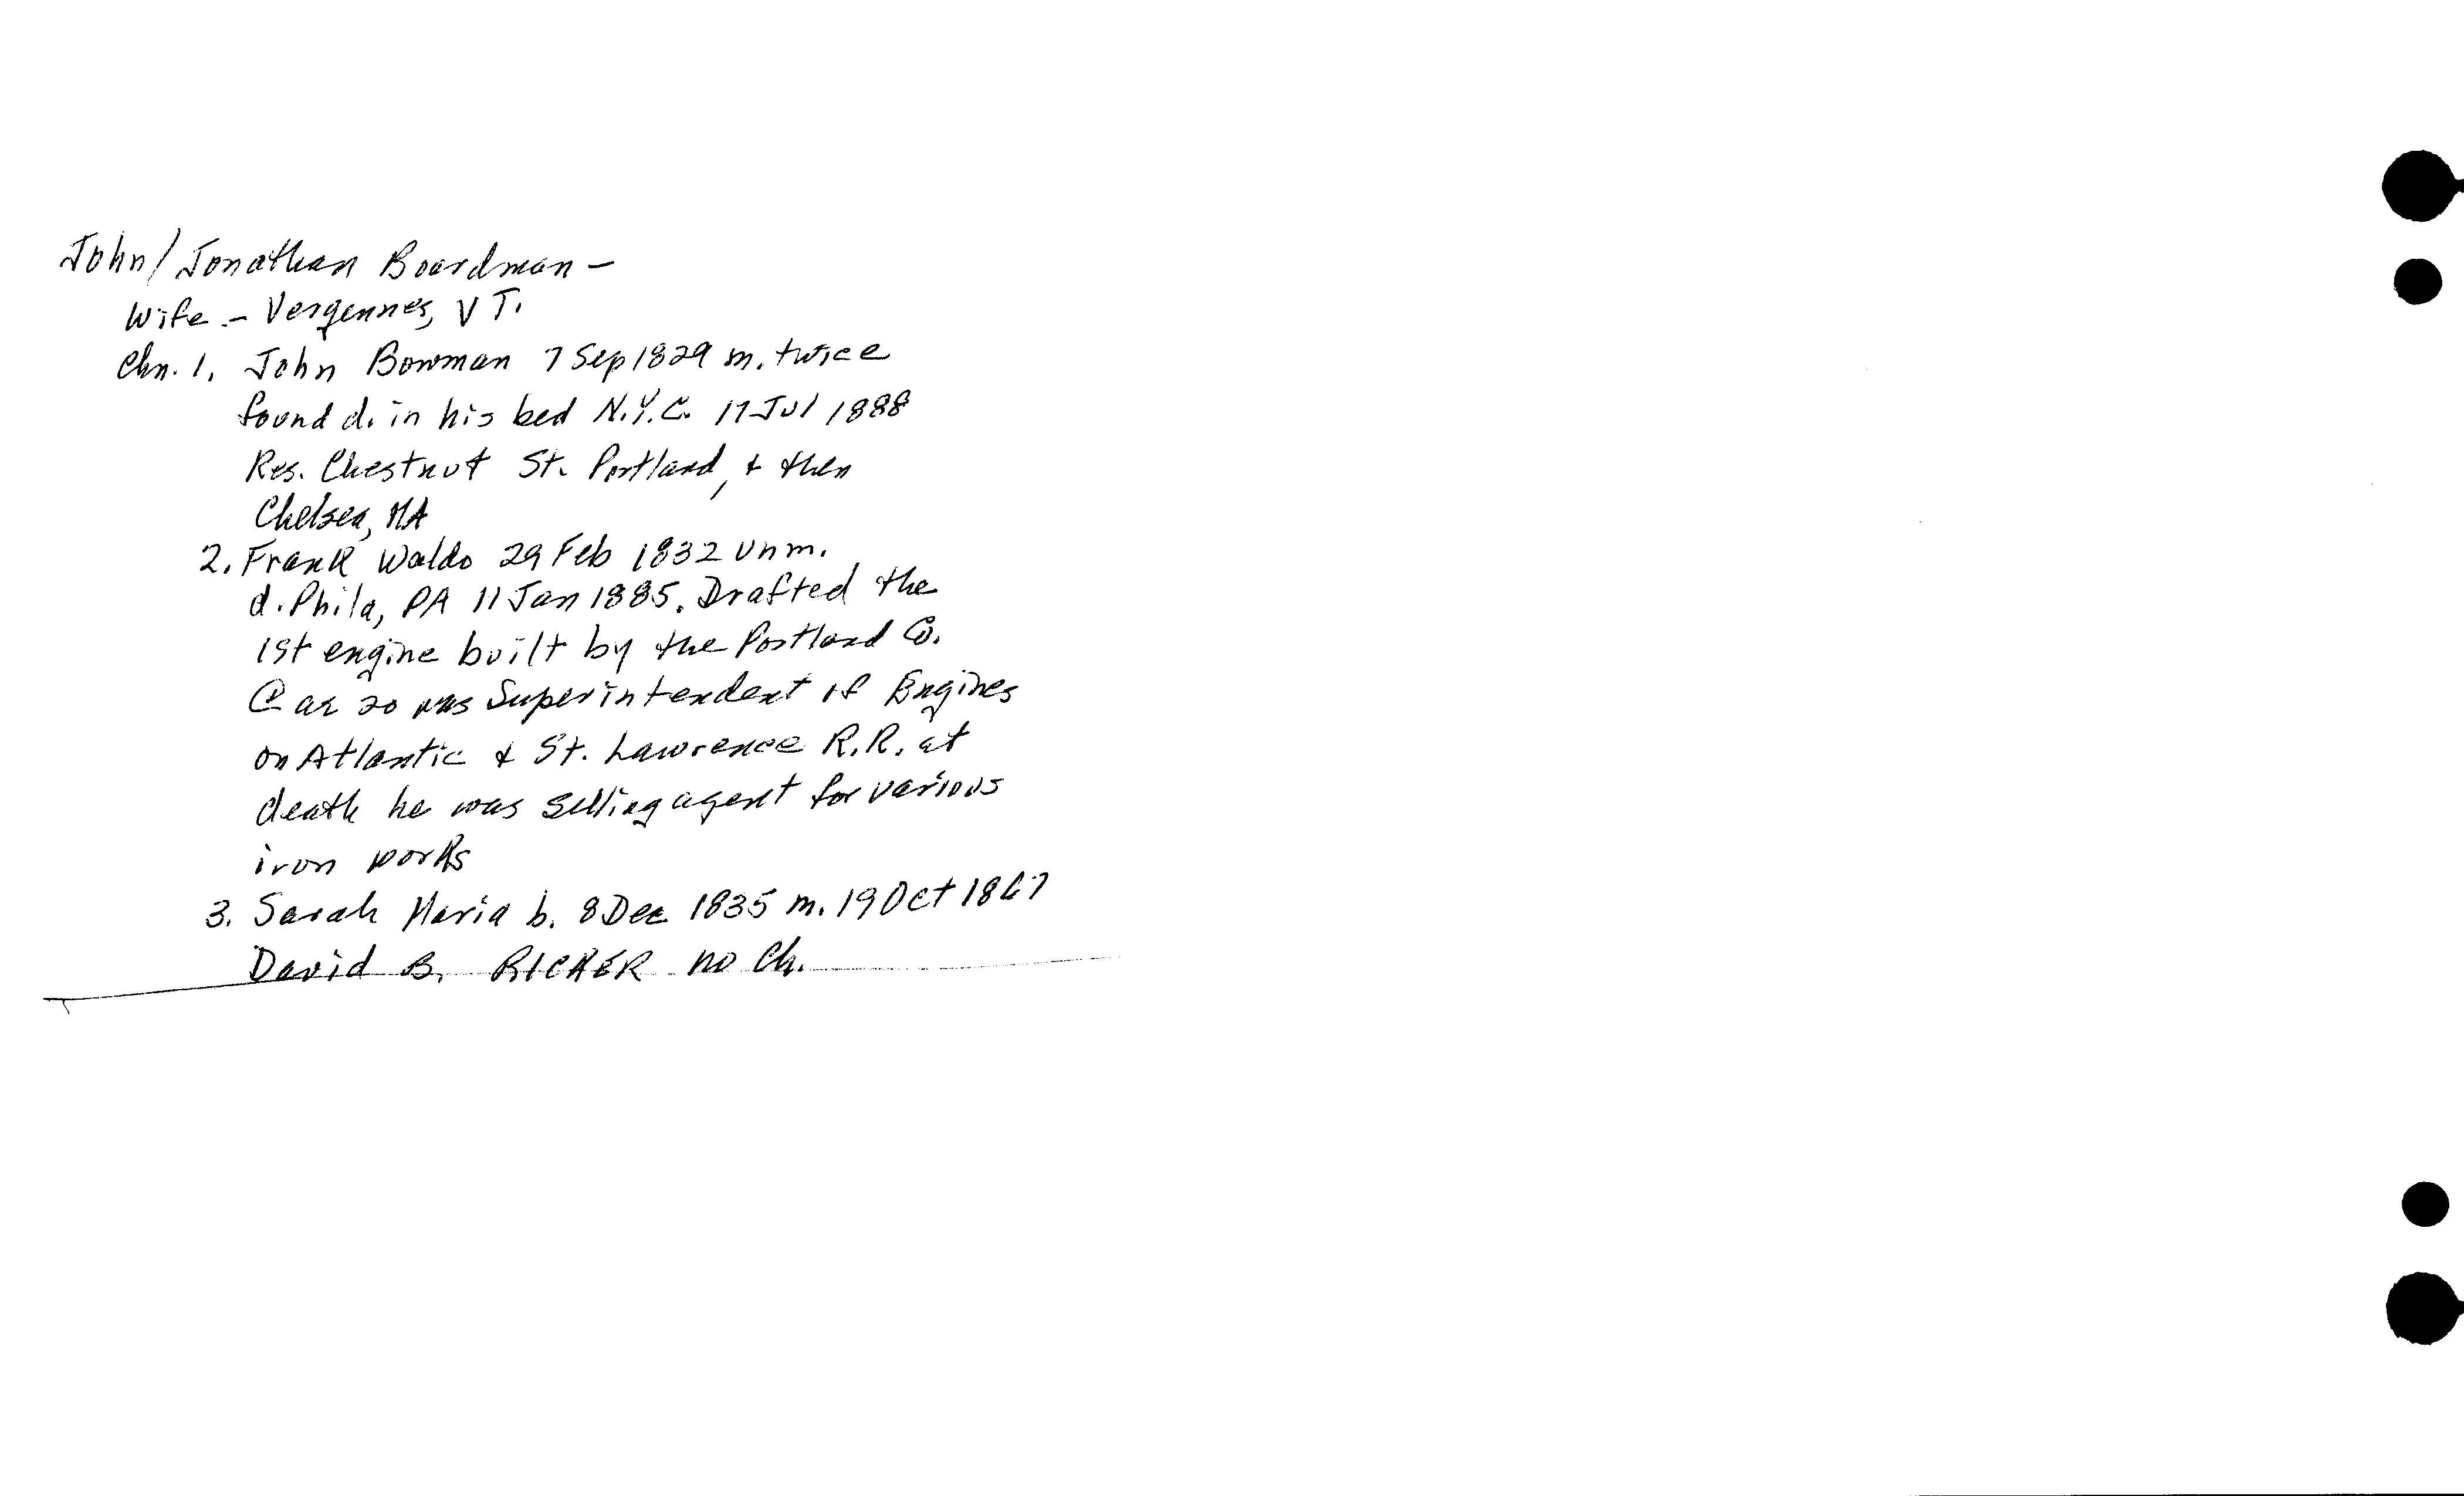 John/Jonathan Boardman -
Wife - Vergennes, VT.
Chn. 1. John Bowman 7 Sep 1829 m. twice
found d. in his bed N.Y.C. 17 Jul 1888
Res. Chestnut St. Portland, & then
Chelsea, MA
2. Frank Waldo 29 Feb 1832 unm.
d. Phila, PA 11 Jan 1885. Drafted the
1st engine built by the Portland Co.
@ 20 was Superintendent of Engines
on Atlantic & St. Lawrence R.R. at
death he was selling agent for various
iron works
3. Sarah Maria b. 8 Dec 1835 m. 19 Oct 1867
David B. RICKER no Ch.